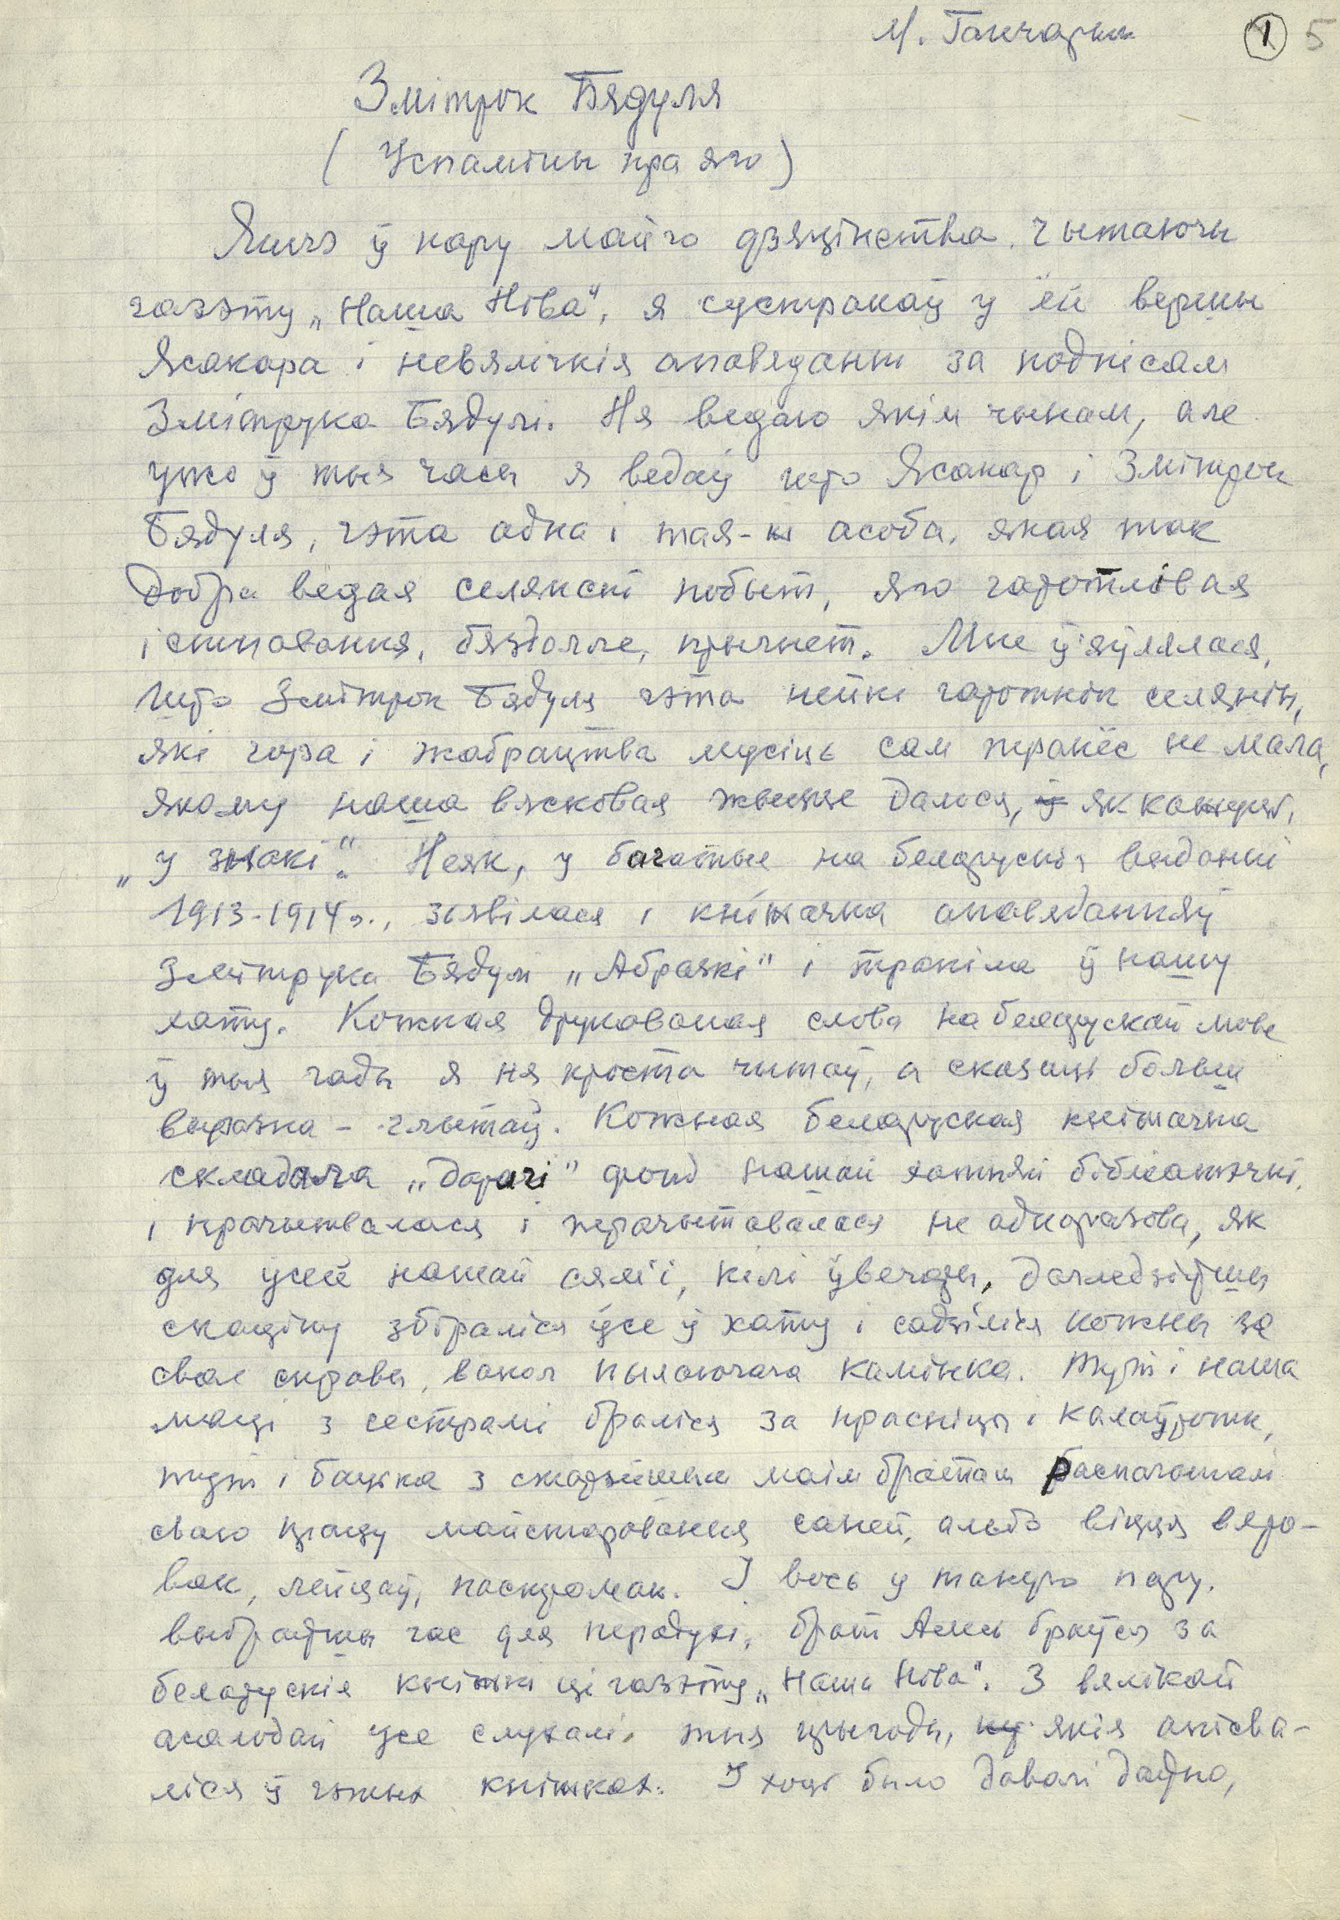 М. Ганчарык
1 5
Змітрок Бядуля
( Успаміны пра яго )
Яшчэ ў пару майго дзяцінства, чытаючы
газэту „Наша Ніва“, я сустракаў у ёй вершы
Ясакара і невялічкія апавяданні за подпісам
Змітрука Бядулі. Ня ведаю якім чынам, але
ужо ў тыя часы я ведаў што Ясакар і Змітрок
Бядуля, гэта адна і тая-ж асоба, якая так
добра ведая селянскі побыт, яго гаротлівая
існаванне, бяздолле, прыгнёт. Мне ўяўлялася,
што Змітрок Бядуля гэта нейкі гаротнік селянін,
які гора і жабрацтва мусіць сам перанёс не мала,
якому наша вясковая жыццё далося, як кажуць,
„у знакі“. Неяк, у багатыя на беларускія выданні
1913-1914 г., зьявілася і кніжачка апавяданняў
Змітрука Бядулі „Абразкі“ і трапіла ў нашу
хату. Кожная друкаваная слова на беларускай мове
ў тыя гады я ня проста чытаў, а сказаць больш
выразна - глытаў. Кожная беларуская кніжачка
складала „дарагі“ фонд нашай хатняй бібліятэчкі,
і прачытвалася і перачытавалася не аднаразова, як
для ўсей нашай сям'і, калі ўвечары, дагледзіўшы
скаціну збіраліся ўсе ў хату і садзіліся кожны за
свае справы, вакол пылаючага камінка. Тут і наша
маці з сестрамі браліся за прасніцы і калаўроткі,
тут і бацька з старэйшым маім братам распачыналі
сваю працу майстаравання саней, альбо віцця вяро-
вак, лейцаў, паскромак. І вось у такую пару,
выбраўшы час для перадыхі, брат Алесь браўся за
беларускія кніжкі ці газэту „Наша Ніва“. З вялікай
асалодай усе слухалі тыя прыгоды, якія апісва-
ліся ў гэтых кніжках. І хоць было даволі даўно,